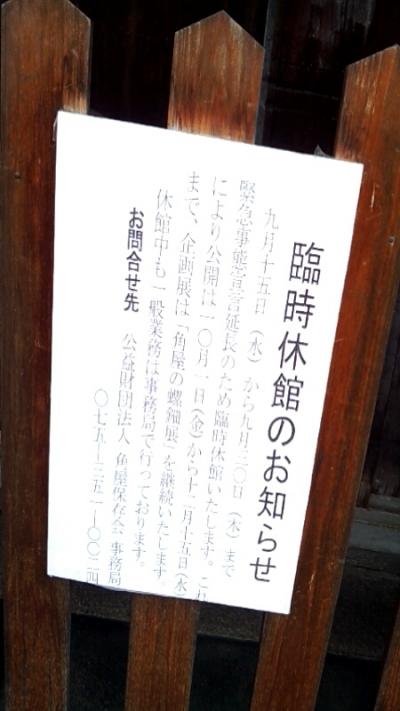 臨時休館のお知らせ
九月十五日（水）から九月三〇日（木）まで
緊急事態宣言延長のため臨時休館いたします。これ
により公開は一〇月一日（金）から十二月十五日（水）
まで、企画展は「角屋の螺鈿展」を継続いたします。
休館中も一般業務は事務局で行っております。
お問合せ先
公益財団法人 角屋保存会 事務局
〇七五―三五一―〇〇二四